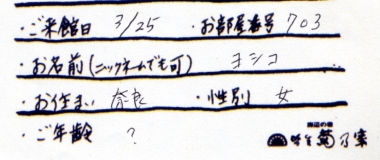 ・ご来館日 3/25 ・お部屋番号 703
・お名前(ニックネームでも可) ヨシコ
・お住まい 奈良 ・性別 女
・ご年齢 ?
海辺の宿
味を 菊乃家